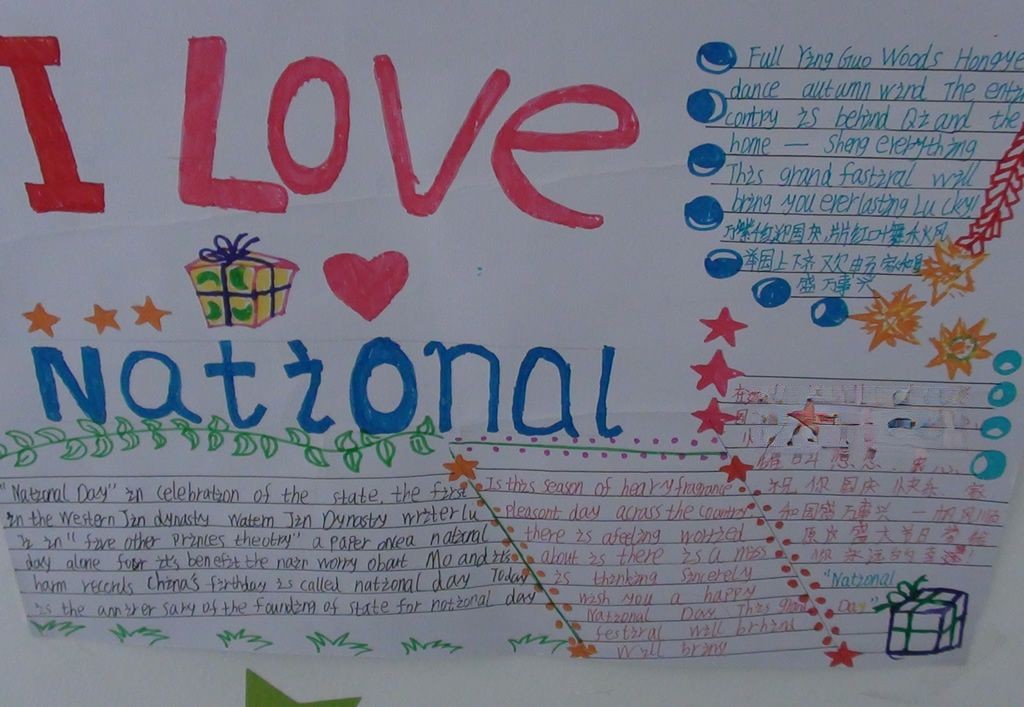 I LOVe
National
Full Ying Guo Woods Hongye
dance autumn wind The enti
contry is behind Qi and the
home — Sheng everything
This grand fastiral will
bring you everlasting Lucky
万紫千红迎国庆,片片红叶舞秋风
举国上下齐欢
盛万事兴
"National Day" in celebration of the state, the first
in the Western Jin dynasty watern Jin Dynasty writer lu
Ji in " five other princes theotry" a paper once a natural
day alone four it's benefit the nain worry obout Mo and it's
harm records China's firthday is called national day Today
is the annirer sary of the founding of state for notional day
Is this season of heary fragrance
pleasant day across the country
there is afeeling worried
about is there is a miss
is thinking sincerely
wish you a happy
National Day This grand
festiral will brhind
will bring
祝你国庆快乐 家
和国盛万事兴 一帆风顺
愿这盛大节日
"National
Day"